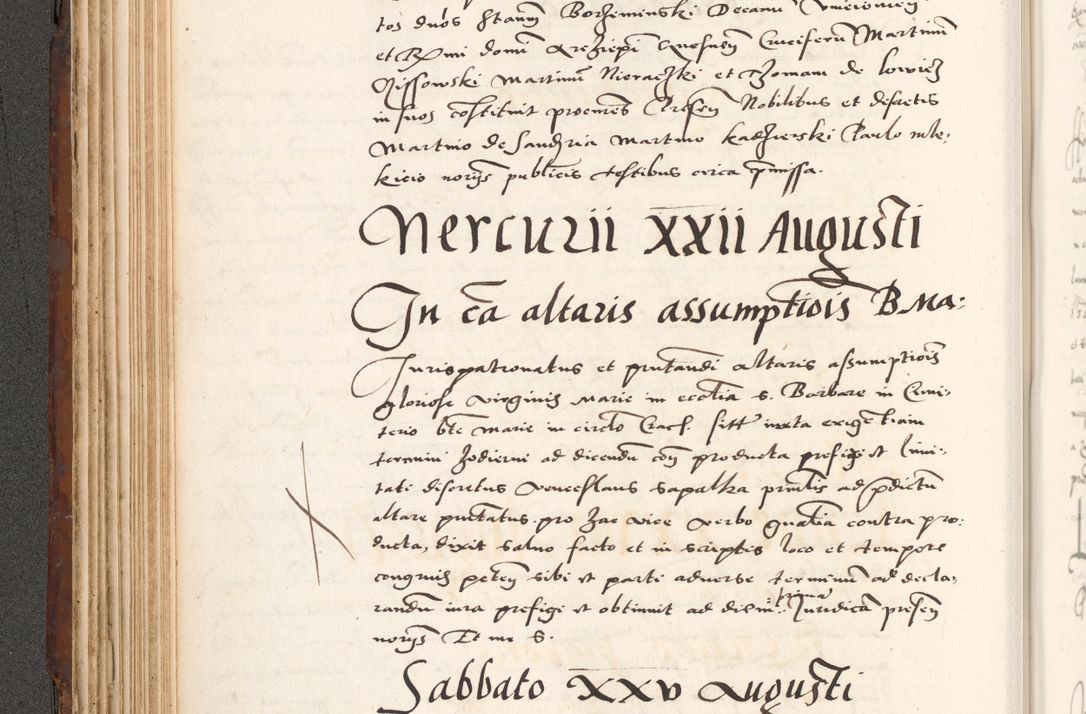 tos dnos Stanm Borzeminski Decanu Unieiovien
et Rmi domi Archiepi Gnesnen Cruciferu Martinu
Rissowski Martinu Nieraczki et Thomam de lowicz
in suos constituit procures Presen Nobilibus et discretis
Martino de Sandzia Martino kadzierski Paulo mle-
kicio noriis publicis testibus circa pmissa.
Mercurii XXII Augusti
In ca altaris assumptiois B Ma:
Jurispatronatus et pntandi altaris assumptiois
gloriose virginis Marie in ecctia s. Barbare in Cimi-
terio bte Marie in circlo Crac. sitt iuxta exigentiam
termini hodierni ad dicendu con producta prefixe et limi-
tati discretus Venceslaus sapalka prntis ad pdictu
altare pntatus pro hac vice verbo gnalia contra pro:
ducta, dixit salvo facto et in scriptis loco et tempore
congruis peten sibi et parti adverse terminu ad decla-
randu iura prefigi et obtinuit ad diem prima Juridica presen
noriis Et me S.
Sabbato XXV Augusti